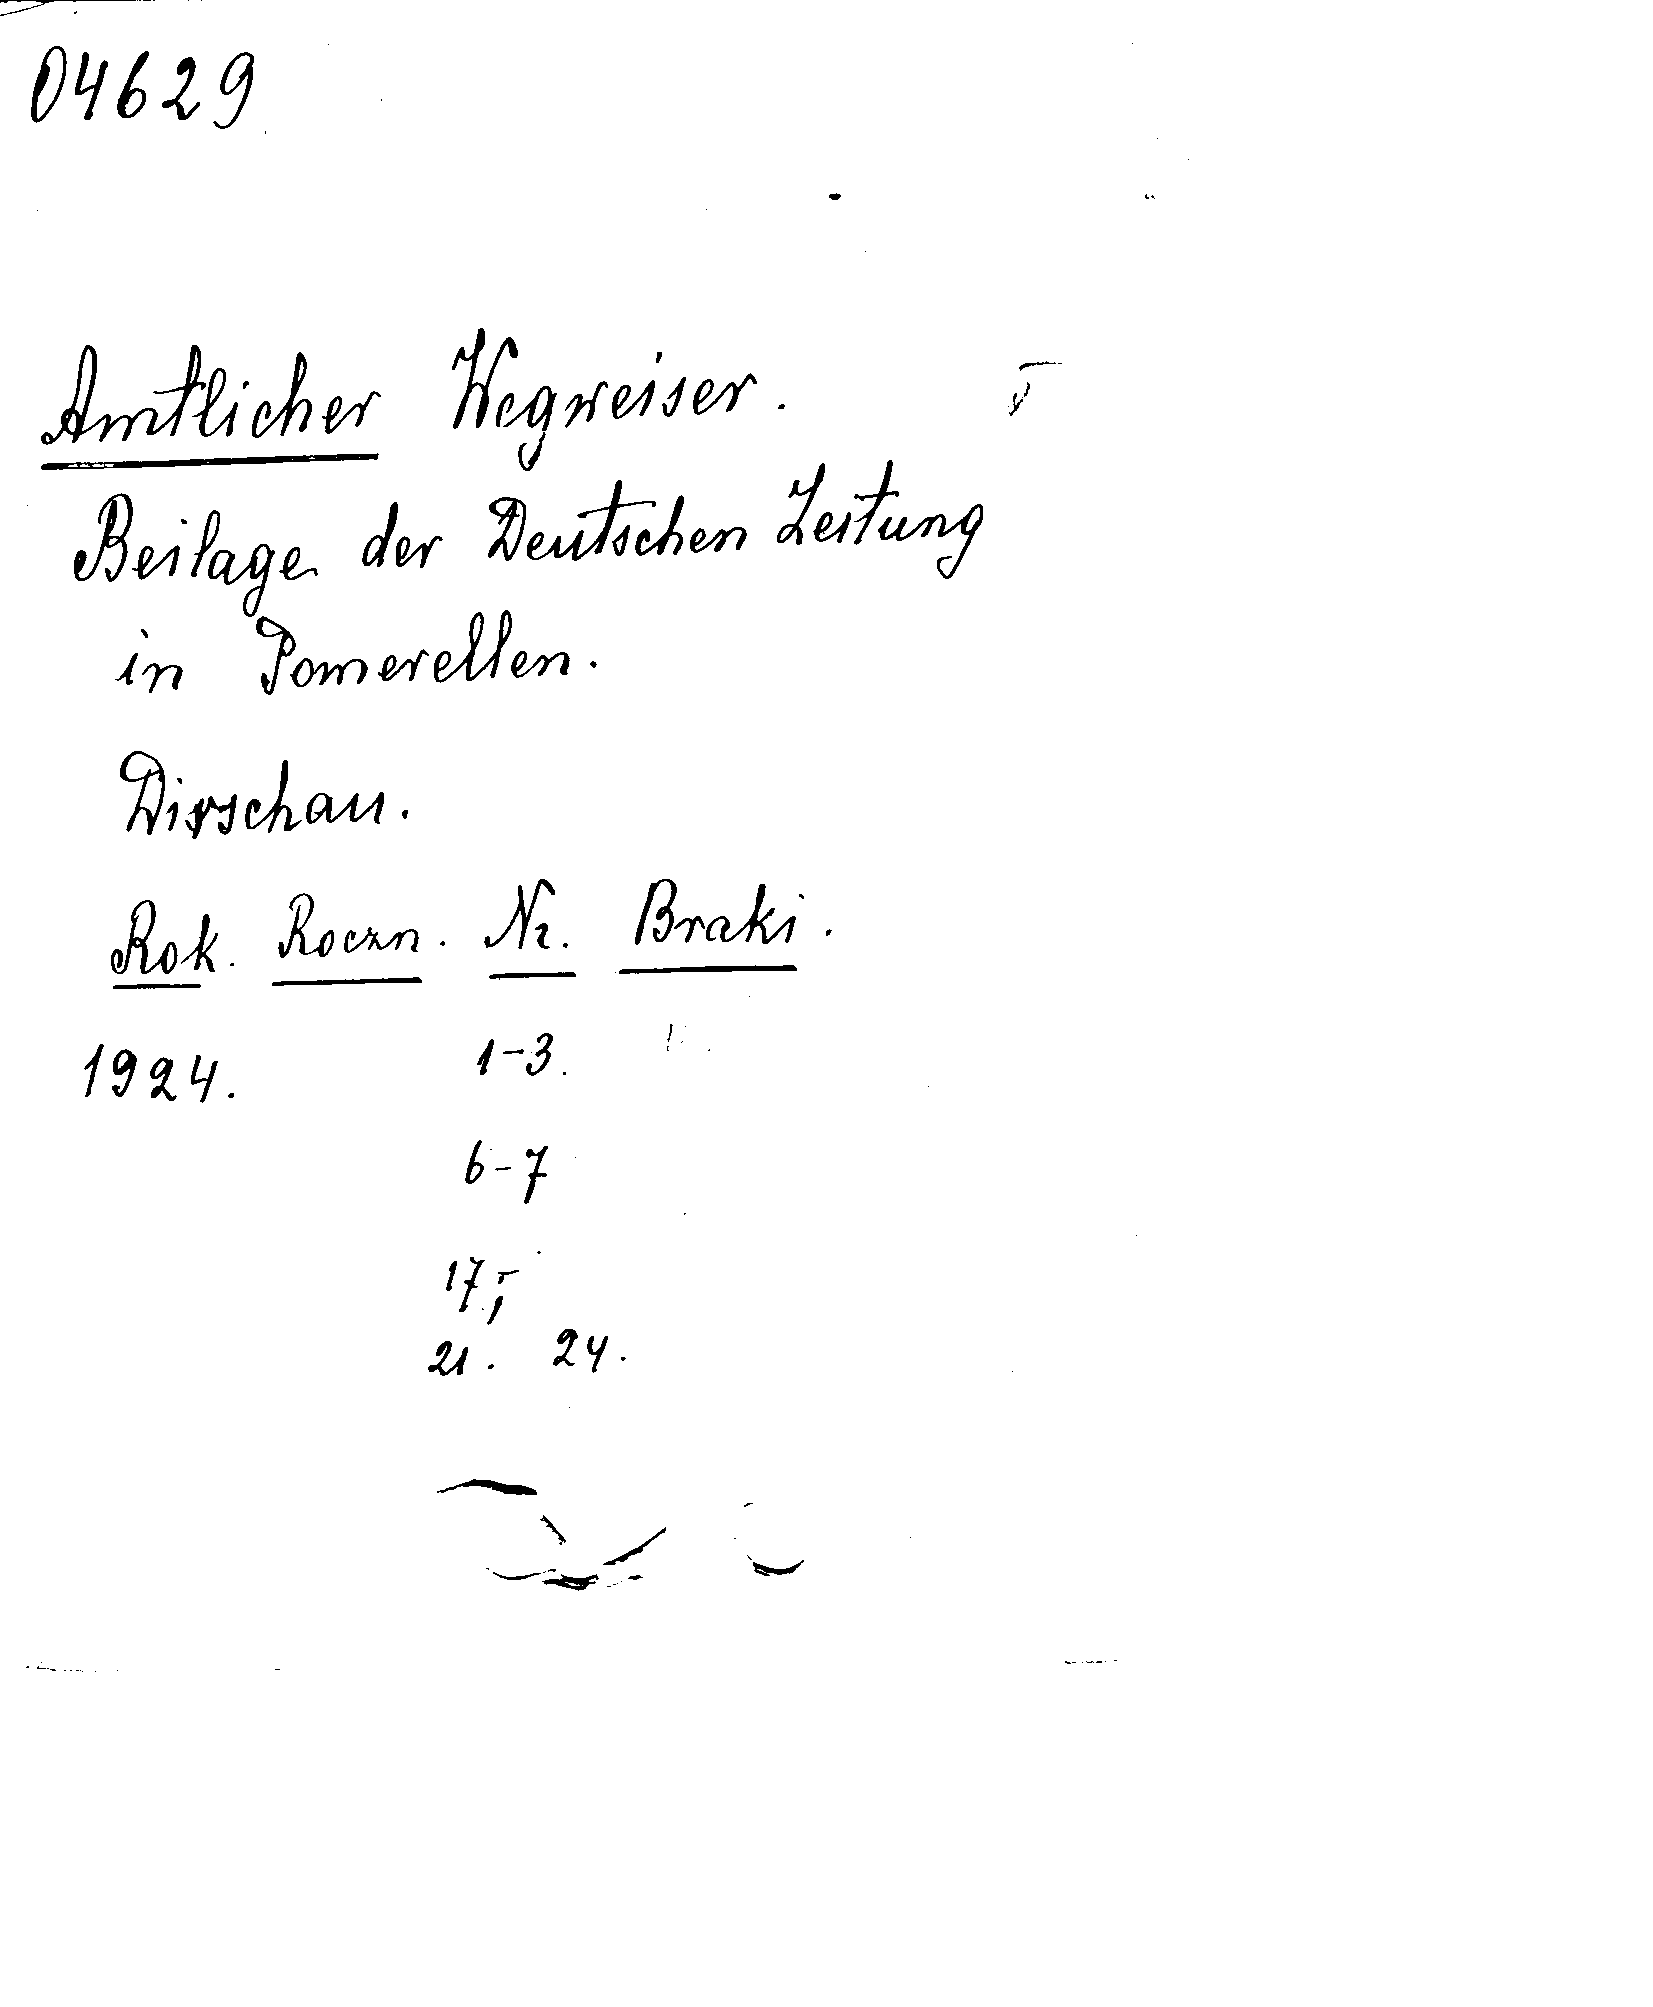 04629
Amtlicher Wegweiser.
Beilage der Deutschen Zeitung
in Pomerellen.
Dirschau.
Rok. Roczn. Nr. Braki.
1924. 1-3.
6-7
17,
21. 24.